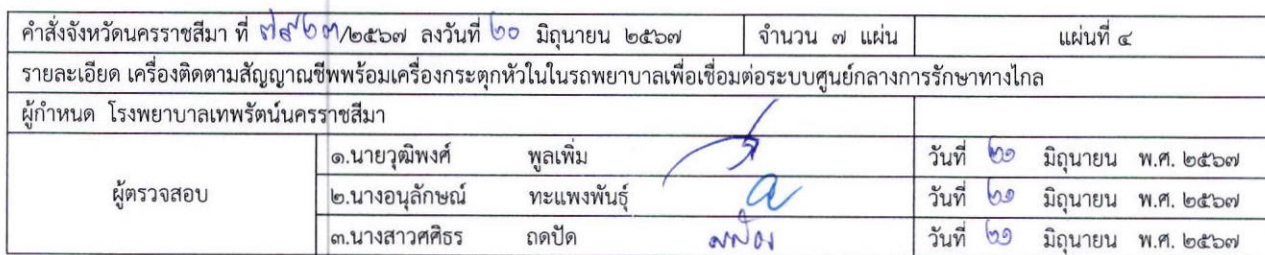 คำสั่งจังหวัดนครราชสีมา ที่ ๗๙๒๓/๒๕๖๗ ลงวันที่ ๒๐ มิถุนายน ๒๕๖๗ จำนวน ๗ แผ่น แผ่นที่ ๔
รายละเอียด เครื่องติดตามสัญญาณชีพพร้อมเครื่องกระตุกหัวใจในรถพยาบาลเพื่อเชื่อมต่อระบบศูนย์กลางการรักษาทางไกล
ผู้กำหนด โรงพยาบาลเทพรัตน์นครราชสีมา
๑.นายวุฒิพงศ์ พูลเพิ่ม วันที่ ๒๑ มิถุนายน พ.ศ. ๒๕๖๗
ผู้ตรวจสอบ ๒.นางอนุลักษณ์ ทะแพงพันธุ์ วันที่ ๒๑ มิถุนายน พ.ศ. ๒๕๖๗
๓.นางสาวศศิธร ถดปัด วันที่ ๒๑ มิถุนายน พ.ศ. ๒๕๖๗